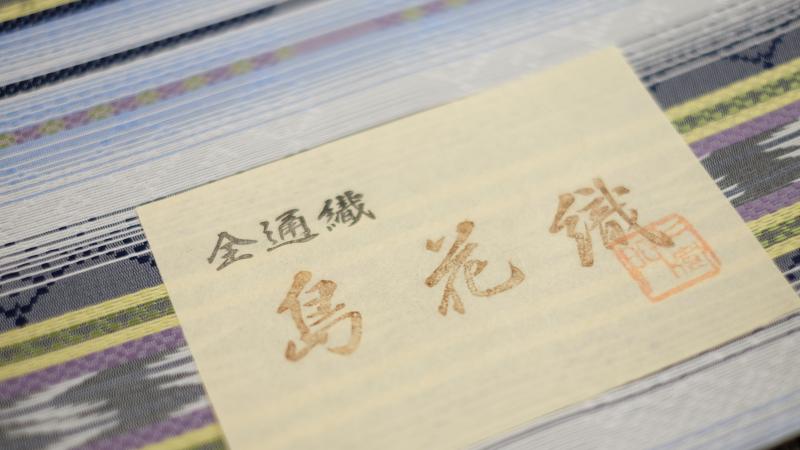 全通織
島花織